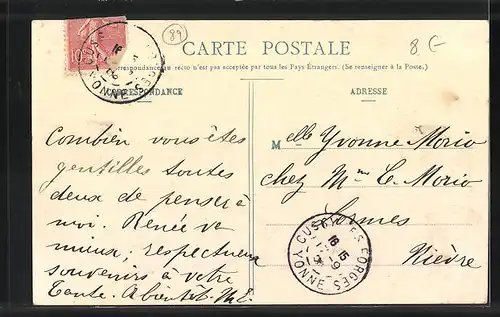 84
8 G
CARTE POSTALE
Correspondance au recto n'est pas acceptée par tous les Pays Étrangers. (Se renseigner à la Poste.)
CORRESPONDANCE
ADRESSE
Combien vous êtes
gentilles toutes
deux de penser à
moi. Renée va
mieux; respectueux
souvenirs à votre
Tante. A bientôt. M. E.
Melle Yvonne Morio
chez Mme E. Morio
Cormes
Nièvre
CUSSY-LES-FORGES
18 15
YONNE